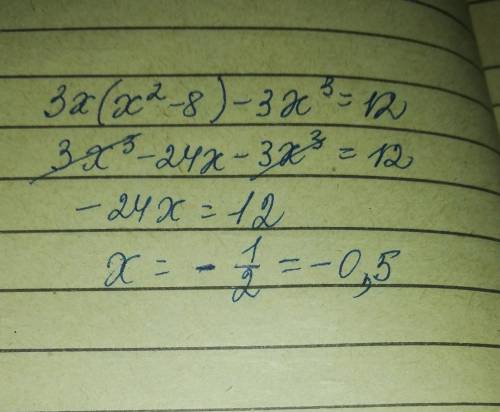 3x(x²-8)-3x³=12
3x³-24x-3x³=12
-24x=12
x=-1/2=-0,5